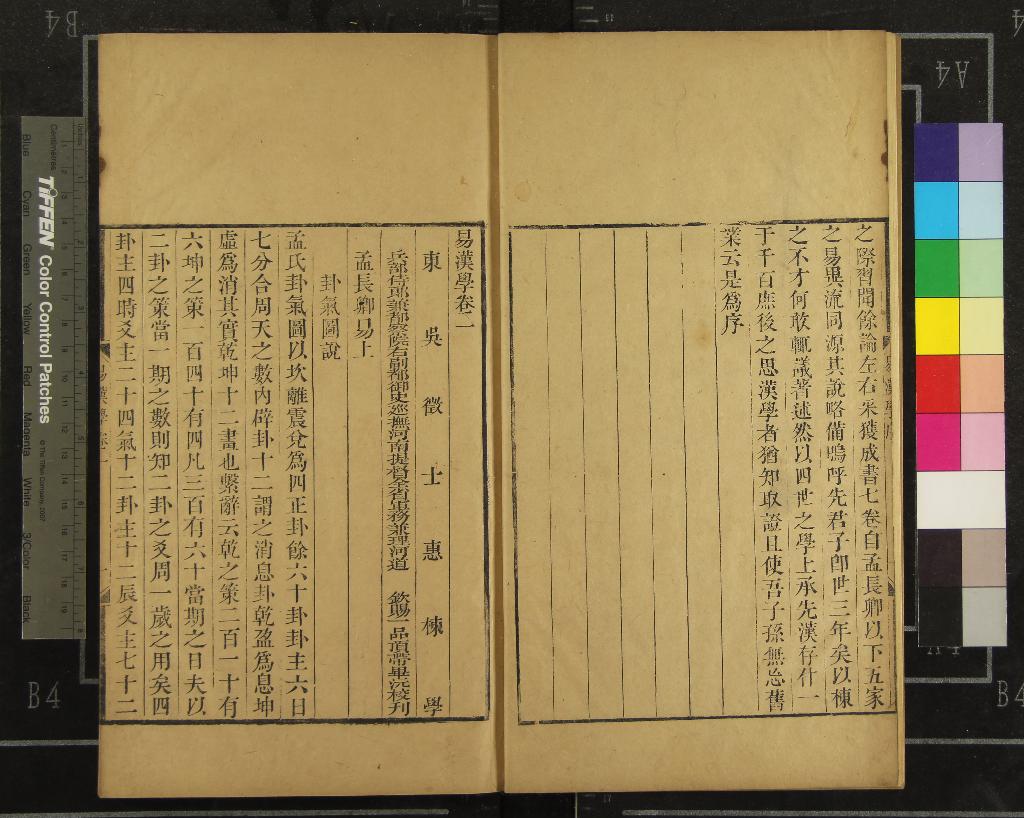 之際習聞餘論左右采獲成書七卷自孟長卿以下五家
之易異流同源其說略備嗚呼先君子卽世三年矣以棟
之不才何敢輒議著述然以四世之學上承先漢存什一
于千百庶後之思漢學者猶知取證且使吾子孫無忘舊
業云是爲序
易漢學卷一
東吳徵士惠棟學
兵部侍郎兼都察院右副都御史巡撫河南提督全省軍務兼理河道 欽賜一品頂帶畢沅校刊
孟長卿易上
卦氣圖說
孟氏卦氣圖以坎離震兌爲四正卦餘六十卦卦主六日
七分合周天之數內辟卦十二謂之消息卦乾盈爲息坤
虛爲消其實乾坤十二畫也繫辭云乾之策二百一十有
六坤之策一百四十有四凡三百有六十當期之日夫以
二卦之策當一期之數則知二卦之爻周一歲之用矣四
卦主四時爻主二十四氣十二卦主十二辰爻主七十二
TIFFEN Color Control Patches
© The Tiffen Company, 2007
Centimetres
Inches
Blue
Cyan
Green
Yellow
Red
Magenta
White
3/Color
Black
B4
A4
B4
B4